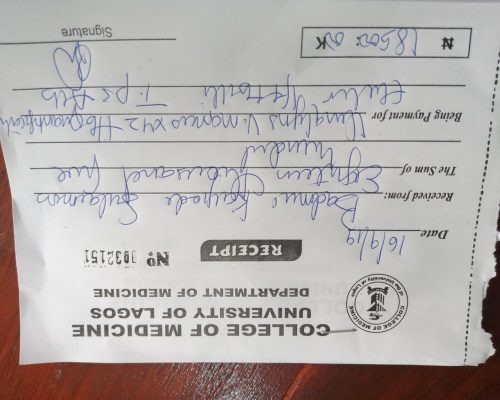 COLLEGE OF MEDICINE
UNIVERSITY OF LAGOS
DEPARTMENT OF MEDICINE
COLLEGE OF MEDICINE
of the University of Lagos
RECEIPT
No 0032151
Date 16/9/19
Received from: Badmus Kayode Sulaimon
The Sum of Eighteen thousand five
hundred
Being Payment for x42 Hb
N 18500 00 K
Signature